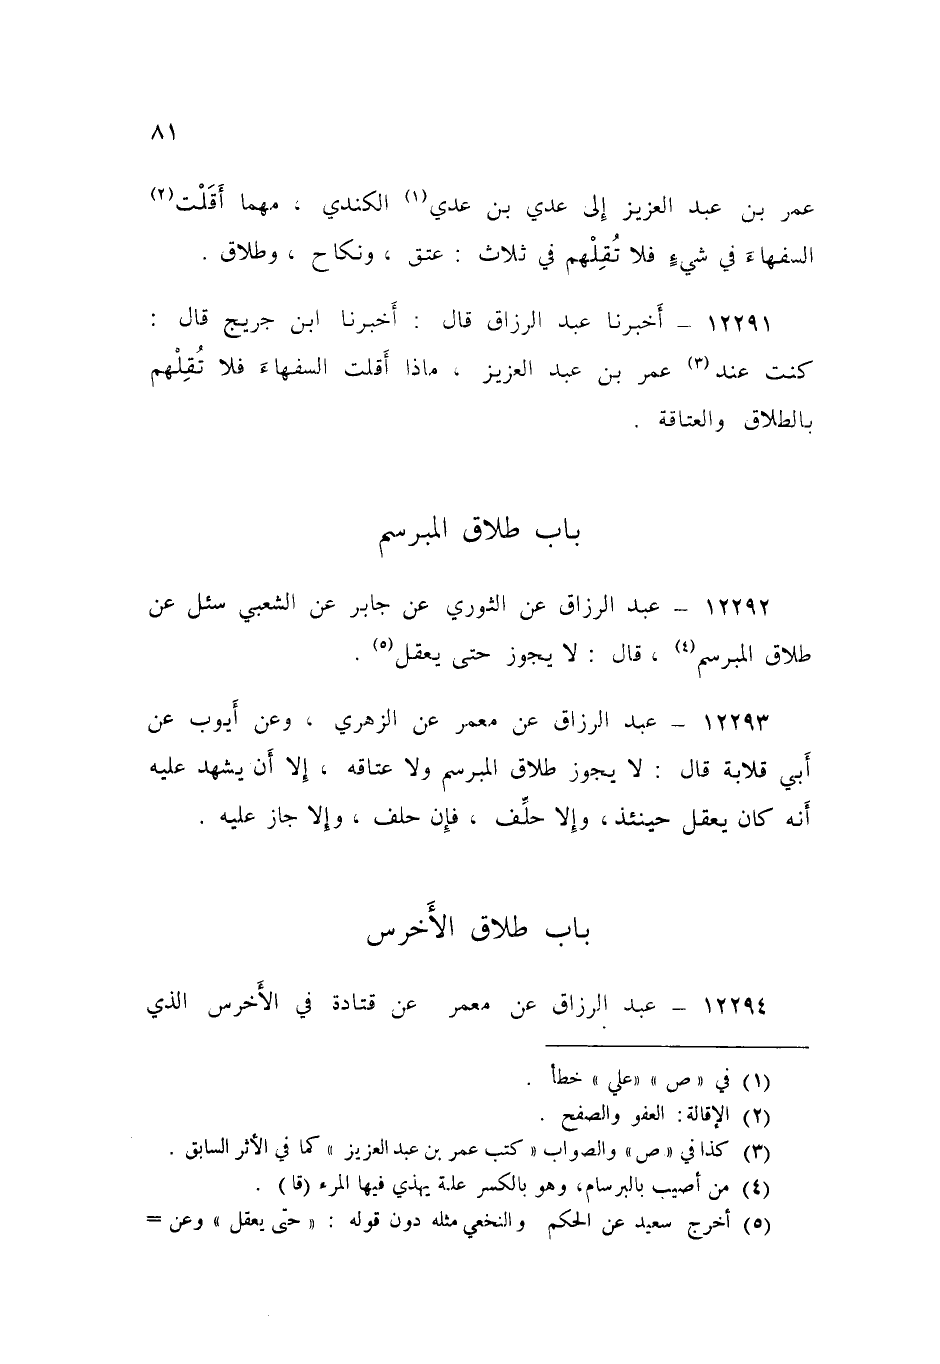 ٨١
عمر بن عبد العزيز إلى عدي بن عدي(١) الكندي ، مهما أَقَلْت(٢)
السفهاءَ في شيءٍ فلا تُقِلْهم في ثلاث : عتق ، ونكاح ، وطلاق .
١٢٢٩١ – أَخبرنا عبد الرزاق قال : أَخبرنا ابن جريج قال :
كنت عند(٣) عمر بن عبد العزيز ، ماذا أَقلت السفهاءَ فلا تُقِلْهم
بالطلاق والعتاقة .
باب طلاق المبرسم
١٢٢٩٢ – عبد الرزاق عن الثوري عن جابر عن الشعبي سئل عن
طلاق المبرسم(٤) ، قال : لا يجوز حتى يعقل(٥) .
١٢٢٩٣ – عبد الرزاق عن معمر عن الزهري ، وعن أَيوب عن
أَبي قلابة قال : لا يجوز طلاق المبرسم ولا عتاقه ، إلا أَن يشهد عليه
أَنه كان يعقل حينئذ، وإلا حلِّف ، فإن حلف ، وإلا جاز عليه .
باب طلاق الأَخرس
١٢٢٩٤ – عبد الرزاق عن معمر عن قتادة في الأَخرس الذي
(١) في « ص » «علي » خطأ .
(٢) الإقالة: العفو والصفح .
(٣) كذا في « ص» والصواب « كتب عمر بن عبد العزيز » كما في الأثر السابق .
(٤) من أصيب بالبرسام، وهو بالكسر علة يهذي فيها المرء (قا) .
(٥) أخرج سعيد عن الحكم والنخعي مثله دون قوله : « حتّى يعقل » وعن =